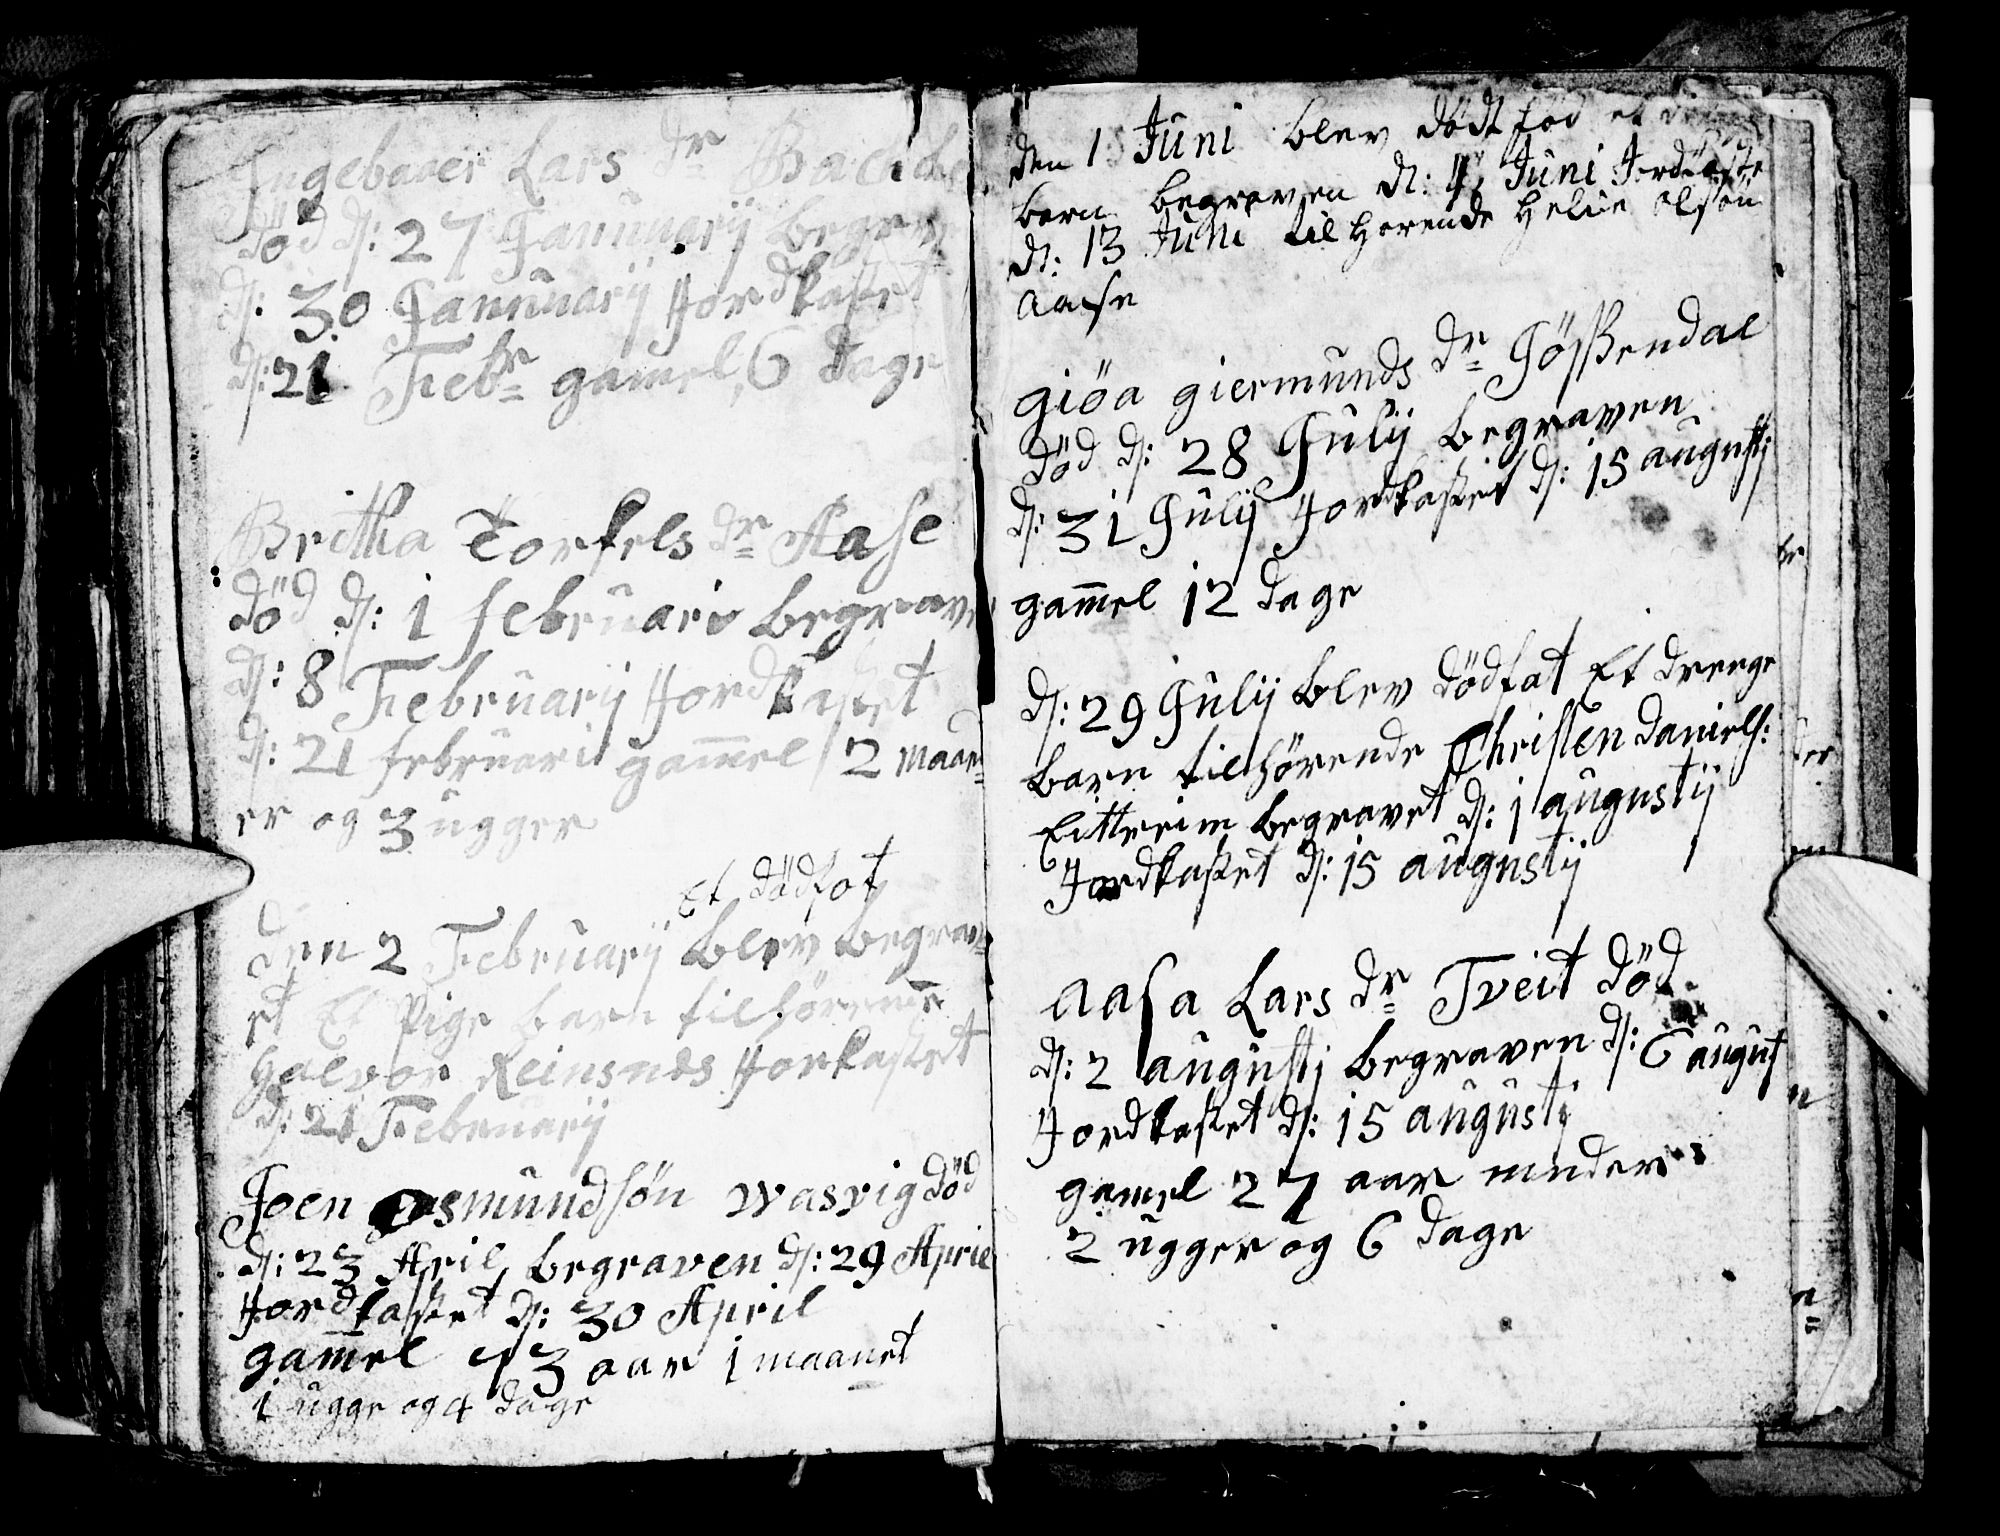 Ingebaaer Lars dr Bache
död d: 27 Januuarij begrave
d: 30 Januuarij Jordkastet
d: 21 Febr gamel 6 dage
Britha Torkels dr Aase
död d: 1 februari begraven
d: 8 Februarij Jordkastet
d: 21 februari gam̄el 2 maan
er og 3 ugger
Et dödfot
den 2 Februarij blev begrav
et Et Pige barn tilhörende
Halvor Reinsnos Jorkastet
d: 21 Februarij
Joen Osmundsön Wasvig död
d: 23 April begraven d: 29 April
Jordkastet d: 30 April
gam̄el 3 aar 1 maanet
1 ugge og 4 dage
den 1 Juni blev dödt föd et
barn begraven d: 4 Juni Jordkaste
d: 13 Juni til horende Helie olsön
aase
giöa giermunds dr Jösßendal
död d: 28 Julij begraven
d: 31 Julij Jordkastet d: 15 augustj
gam̄el 12 dage
d: 29 Julij blev dödfat Et drenge
barn tilhörende Christen daniels:
Eittreim begravet d: 1 augustij
Jordkastet d: 15 augustij
aasa Lars dr Tveit död
d: 2 augustj begraven d: 6 august
Jordkastet d: 15 augustj
gamel 27 aar minder
2 ugger og 6 dage